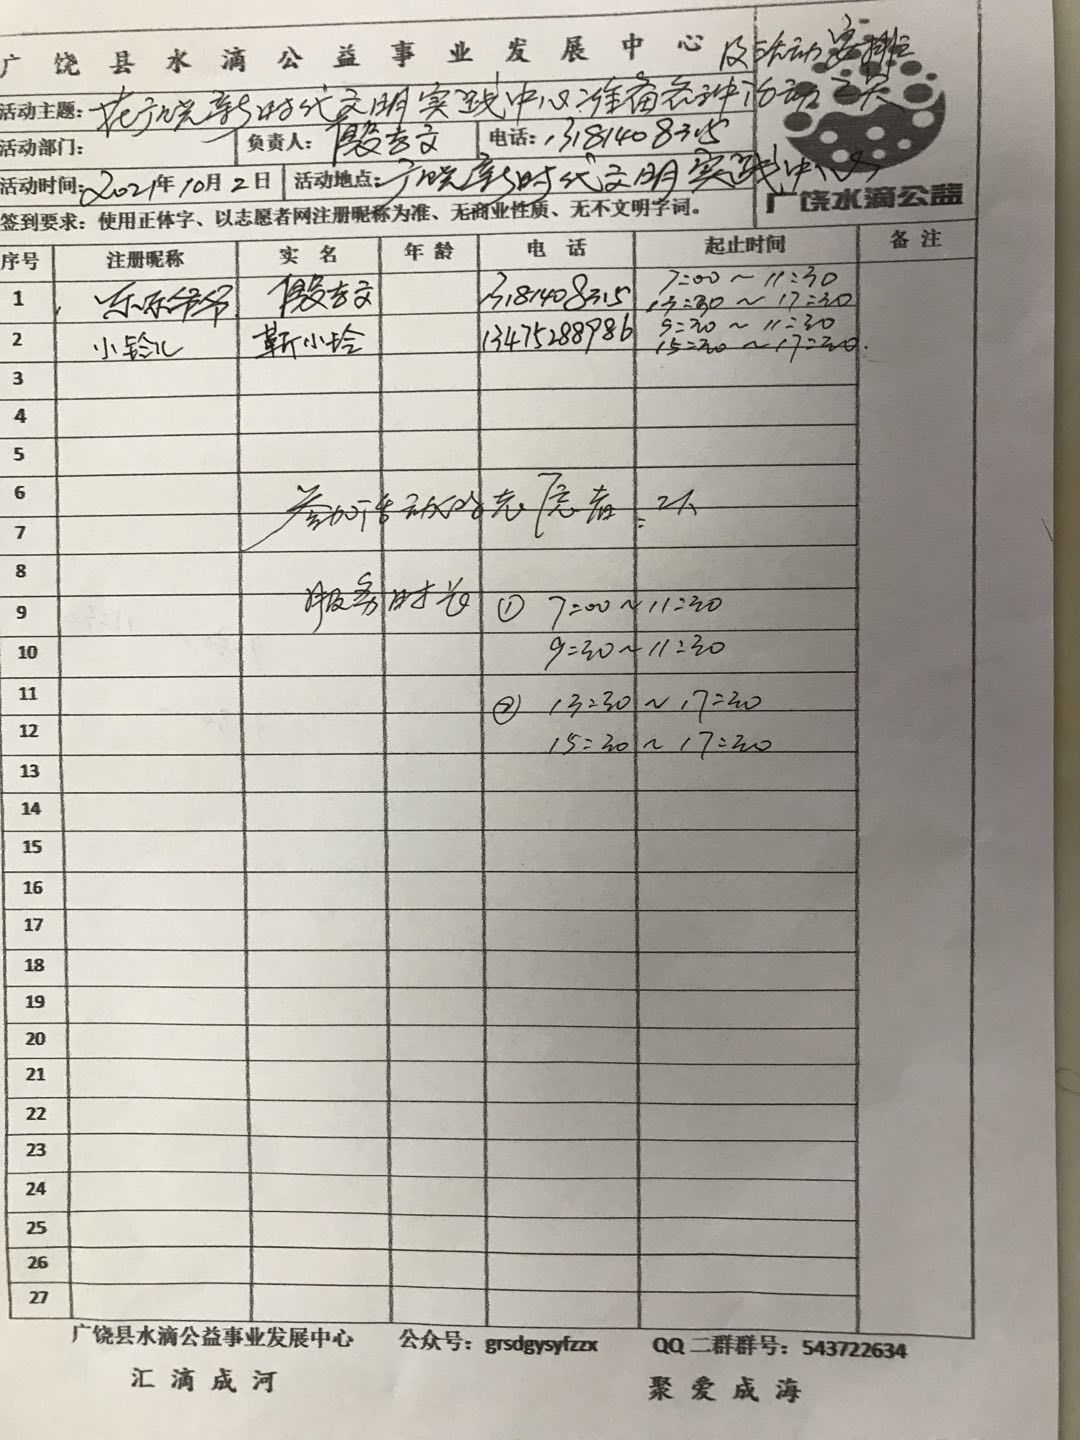 广饶县水滴公益事业发展中心
及活动安排
活动主题：在广饶新时代文明实践中心准备各种活动
活动部门： 负责人： 殷志文 电话：13181408315
活动时间：2021年10月2日 活动地点：广饶新时代文明实践中心
广饶水滴公益
签到要求：使用正体字、以志愿者网注册昵称为准、无商业性质、无不文明字词。
序号 注册昵称 实名 年龄 电话 起止时间 备注
1 乐乐爷爷 殷志文 13181408315 7:00～11:30
13:30～17:30
2 小铃儿 靳小玲 13475288986 9:30～11:30
15:30～17:30.
3
4
5
6
参加活动的志愿者：2人
7
8
9 服务时长 ① 7:00～11:30
10 9:30～11:30
11 ② 13:30～17:30
12 15:30～17:30
13
14
15
16
17
18
19
20
21
22
23
24
25
26
27
广饶县水滴公益事业发展中心 公众号：grsdgysyfzzx QQ二群群号：543722634
汇滴成河 聚爱成海